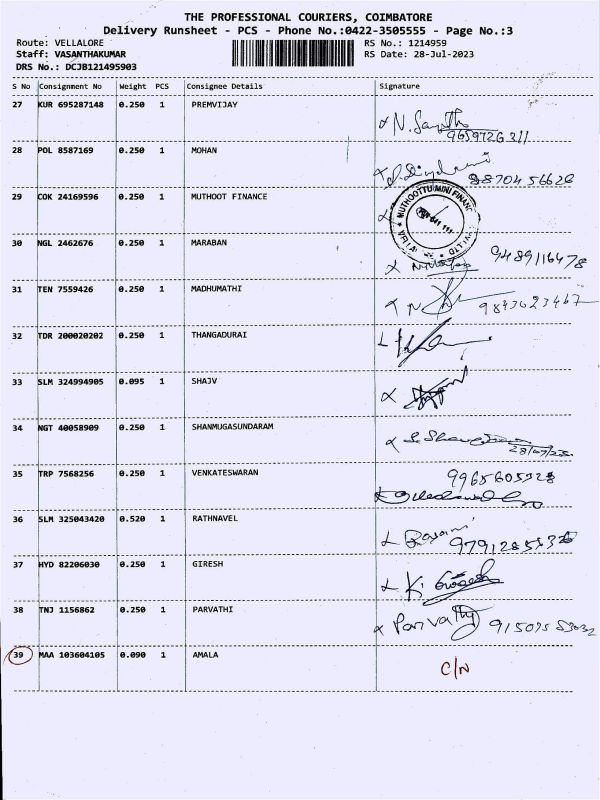 THE PROFESSIONAL COURIERS, COIMBATORE
Delivery Runsheet - PCS - Phone No.:0422-3505555 - Page No.:3
Route: VELLALORE RS No.: 1214959
Staff: VASANTHAKUMAR RS Date: 28-Jul-2023
DRS No.: DCJB121495903
S No Consignment No Weight PCS Consignee Details Signature
27 KUR 695287148 0.250 1 PREMVIJAY
9659726311
28 POL 8587169 0.250 1 MOHAN
9870456626
29 COK 24169596 0.250 1 MUTHOOT FINANCE
30 NGL 2462676 0.250 1 MARABAN 9489116478
31 TEN 7559426 0.250 1 MADHUMATHI
32 TDR 200020202 0.250 1 THANGADURAI
33 SLM 324994905 0.095 1 SHAJV
34 NGT 40058909 0.250 1 SHANMUGASUNDARAM
28/07/23
35 TRP 7568256 0.250 1 VENKATESWARAN
36 SLM 325043420 0.520 1 RATHNAVEL
37 HYD 82206030 0.250 1 GIRESH
38 TNJ 1156862 0.250 1 PARVATHI
Parvathy
39 MAA 103604105 0.090 1 AMALA C/N